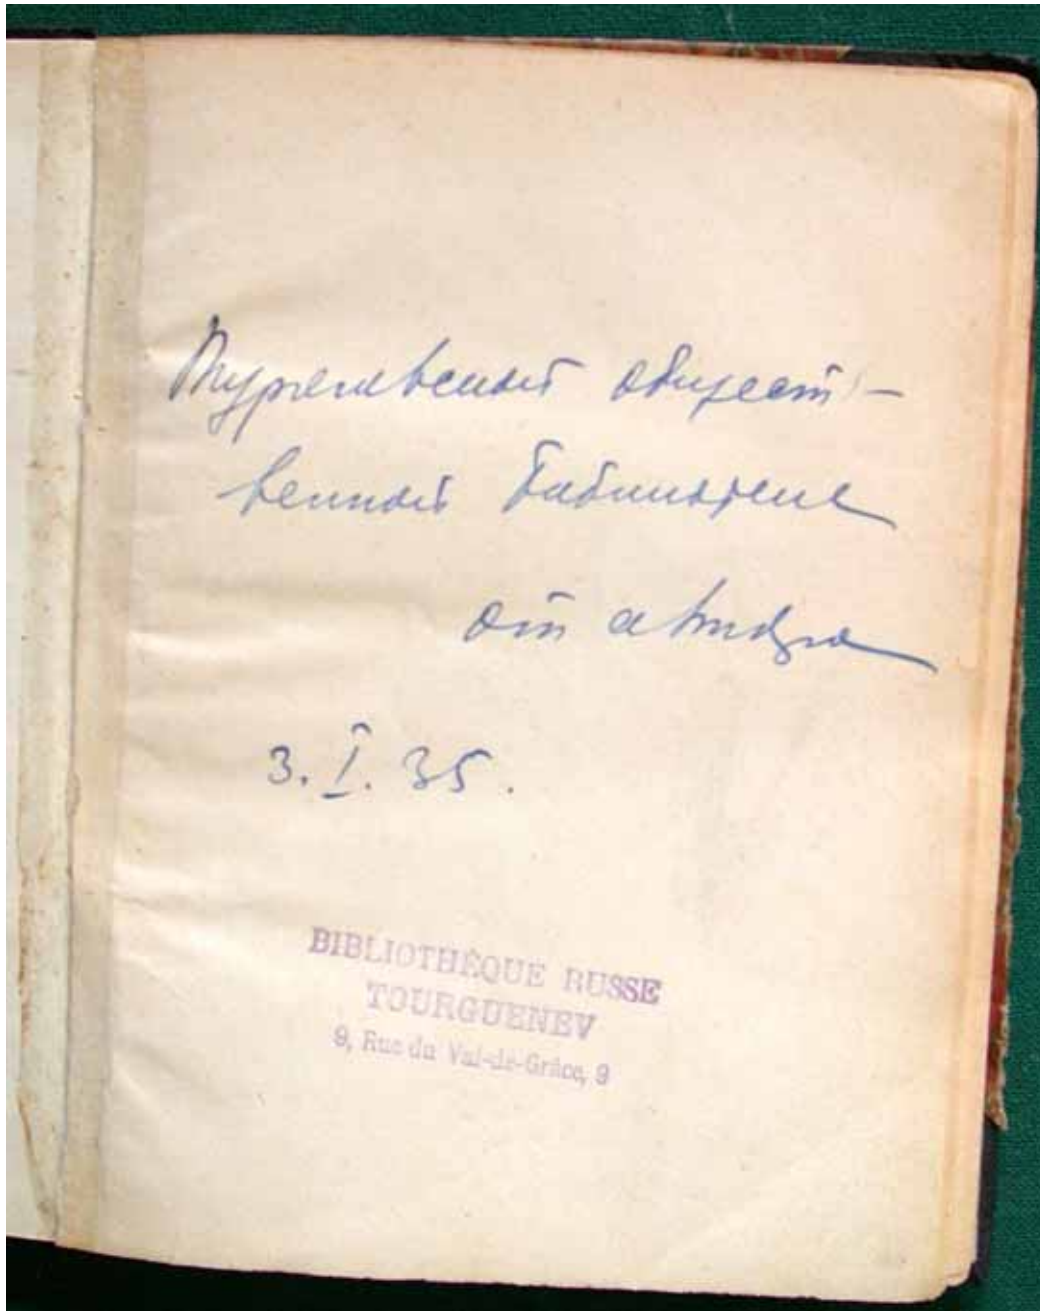 Тургеневской общест-
венной библиотеке
от автора
3. I. 35.
BIBLIOTHÈQUE RUSSE
TOURGUENEV
9, Rue du Val-de-Grâce, 9